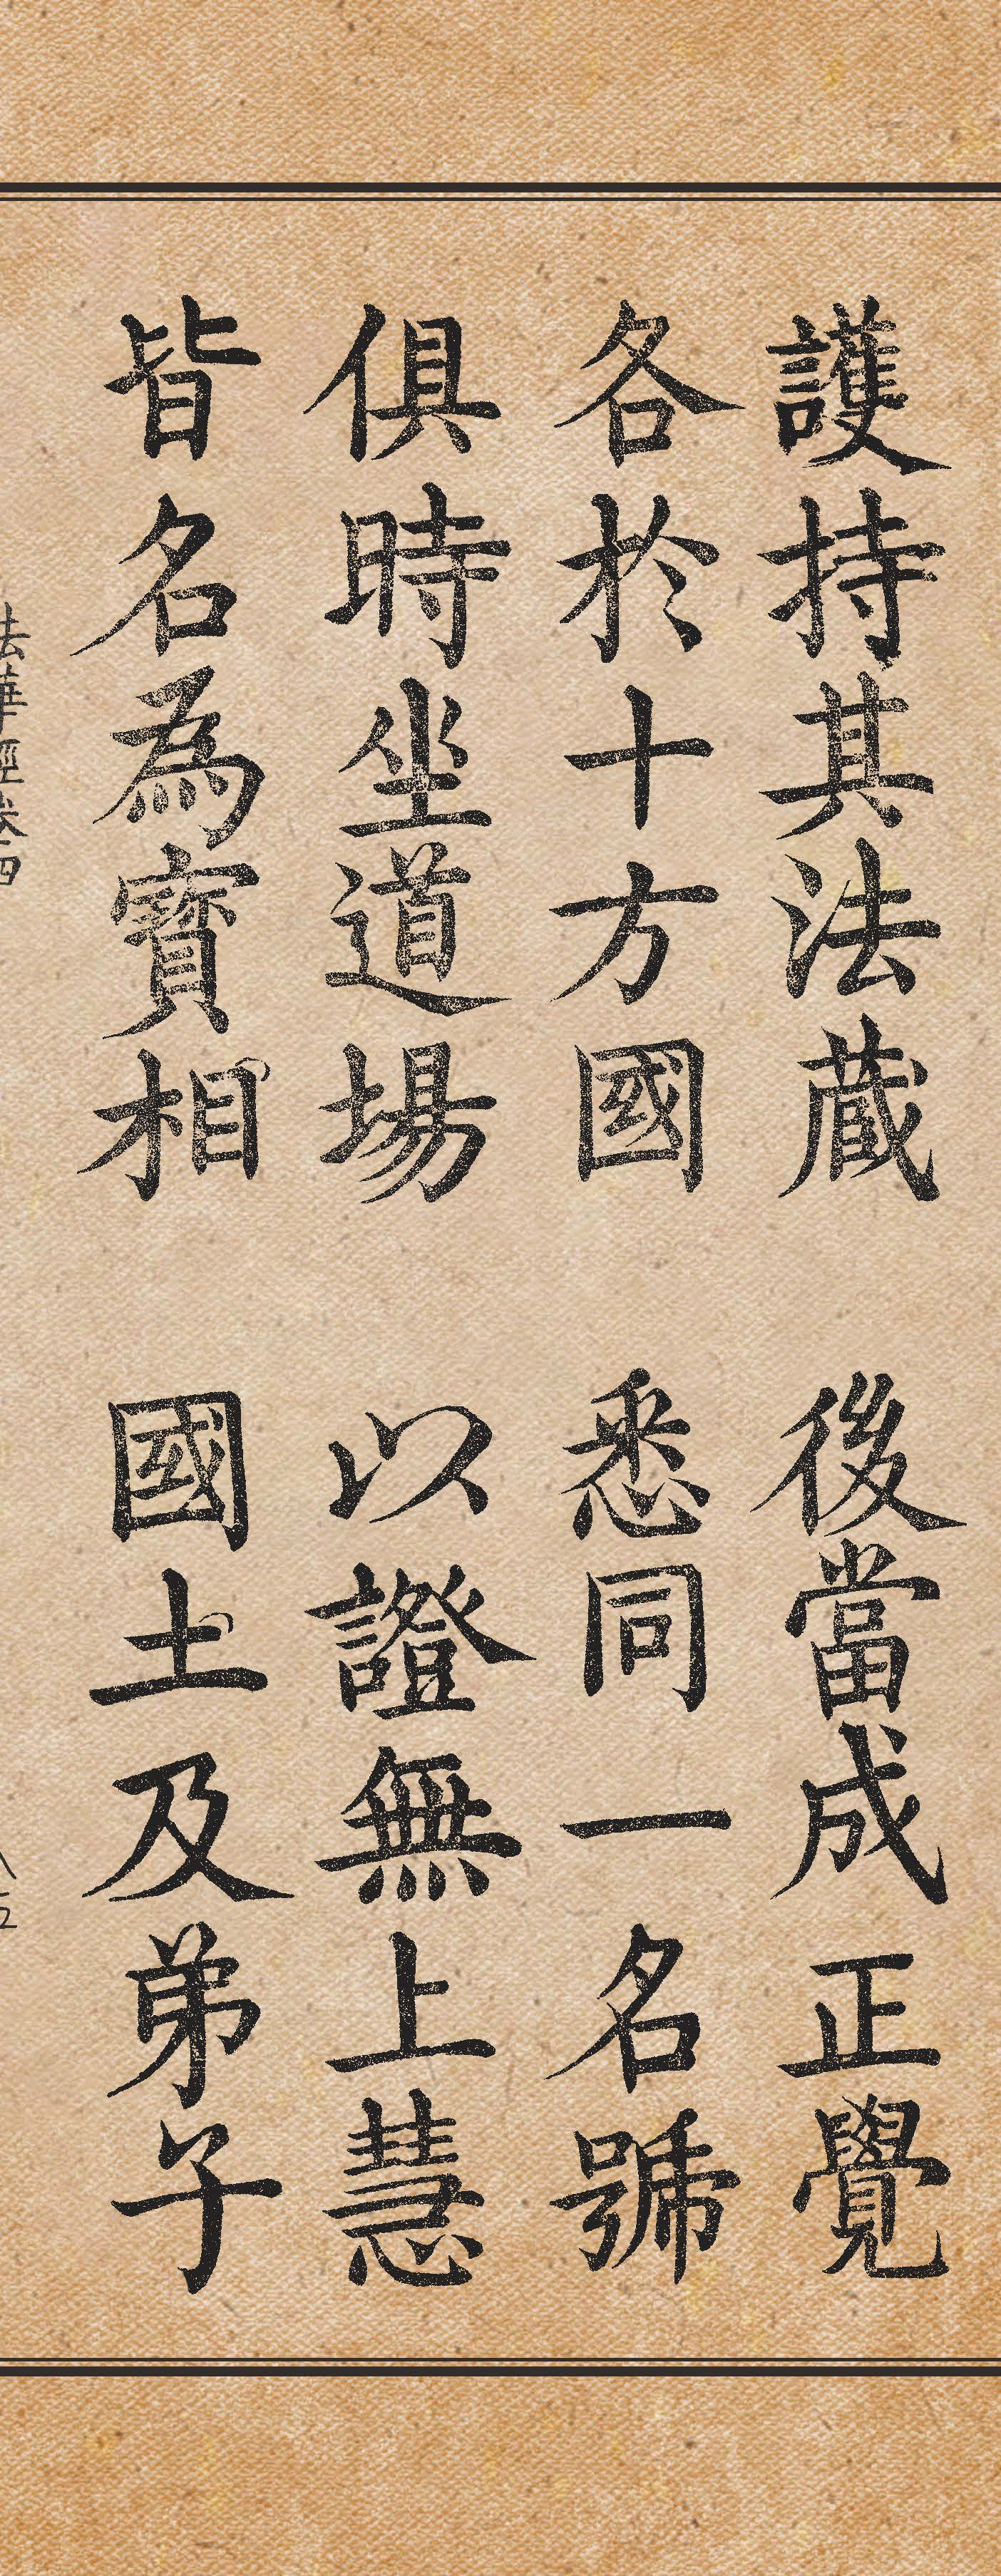 護持其法蔵　後當成正覺
各於十方國　悉同一名號
俱時坐道場　以證無上慧
皆名為寶相　國土及弟子
法華經卷四